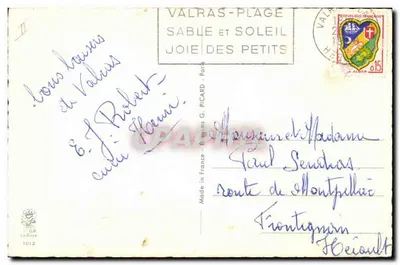 VALRAS-PLAGE
SABLE et SOLEIL
JOIE DES PETITS
REPUBLIQUE FRANCAISE
0,15
bons baisers
de Valras
E. J. Robert
Henri
Made in France
G. PICARD - Paris
Monsieur et Madame
Paul
route de Montpellier
Frontignan
Hérault